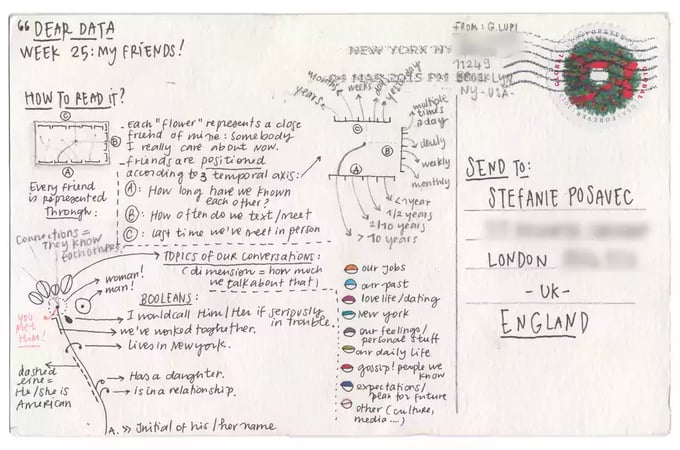 “ DEAR DATA
WEEK 25: My FRIENDS!
HOW TO READ IT?
C
B
A
Every friend
is represented
Through:
- Each "flower" represents a close
friend of mine: Somebody
I really care about now.
- friends are positioned
according to 3 temporal axis:
A: How long have we known
each other?
B: How often do we text/meet
C: last time we've meet in person
years
months
weeks
yesterday
C
B
A
multiple
times
a day
daily
weekly
monthly
<1 year
1/2 years
2/10 years
> 10 years
Connections =
They know
each other!
TOPICS OF OUR CONVERSATIONS:
(dimension = how much
we talk about that)
woman!
man!
you
met
Him!
BOOLEANS:
I would call Him/Her if seriously
in trouble.
we've worked toghether.
Lives in New York.
dashed
line =
He/she is
American
Has a daughter.
is in a relationship.
A. >> Initial of his/her name
our jobs
our past
love life/dating
new york
our feelings/
personal stuff
our daily life
gossip! people we
know
expectations/
plan for future
other (culture,
media...)
NEW YORK NY
FROM: G. LUPI
11249
BROOKLYN
NY - USA -
SEND TO:
STEFANIE POSAVEC
LONDON
- UK -
ENGLAND